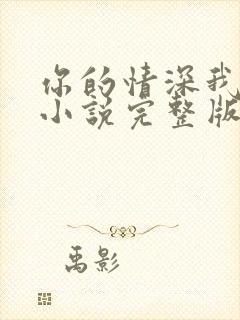 你的情深我
小说完整版
禹影